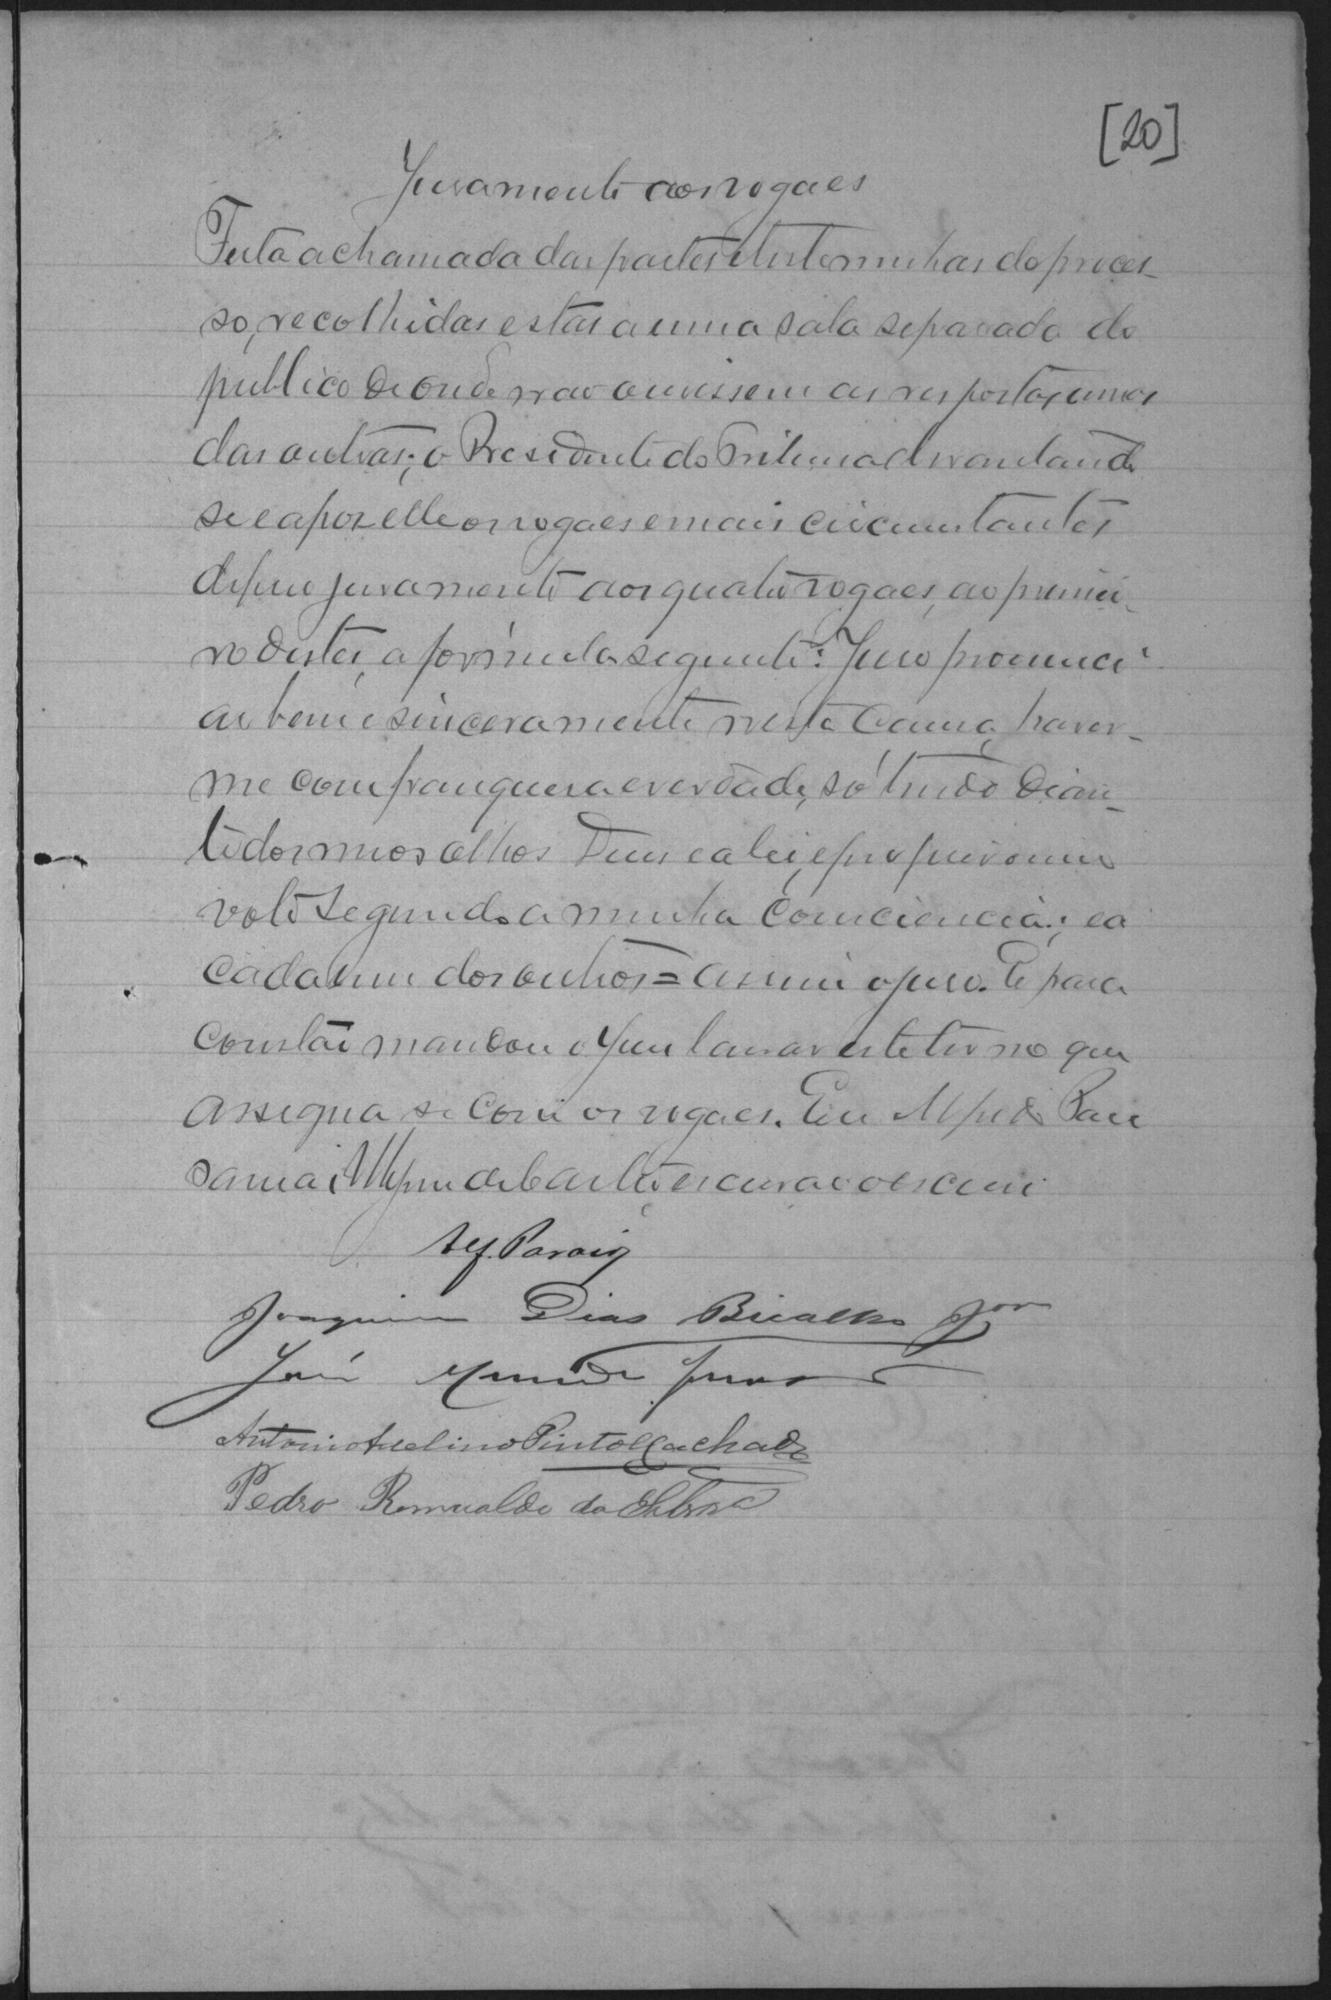 [20]
Juramento aos vogaes
Feita a chamada das partes e testemunhas do proces-
so, recolhidas estas a uma sala separada do
publico de onde não ouvissem as respostas umas
das outras; o Presidente do Tribunal levantando
se e apoz elle os vogaes e mais circumstantes
deferiu juramento aos quatro vogaes, ao primei-
ro destes, a formula seguinte: Juro pronunci
ar bem e sinceramente nesta causa, haver-
me com franqueza e verdade, só tendo dian-
te dos meus olhos Deus e a lei, e proferir o meu
voto segundo a minha consciencia; e a
cada um dos outros = assim o juro. E para
constar mandou o Juiz lavrar este termo que
assigna se com os vogaes. Eu Alfredo
de Castro escrivão o escrevi
Joaquim Dias Bicalho Jor
José
Antonio Avelino Pinto Machado
Pedro Romualdo da Silva